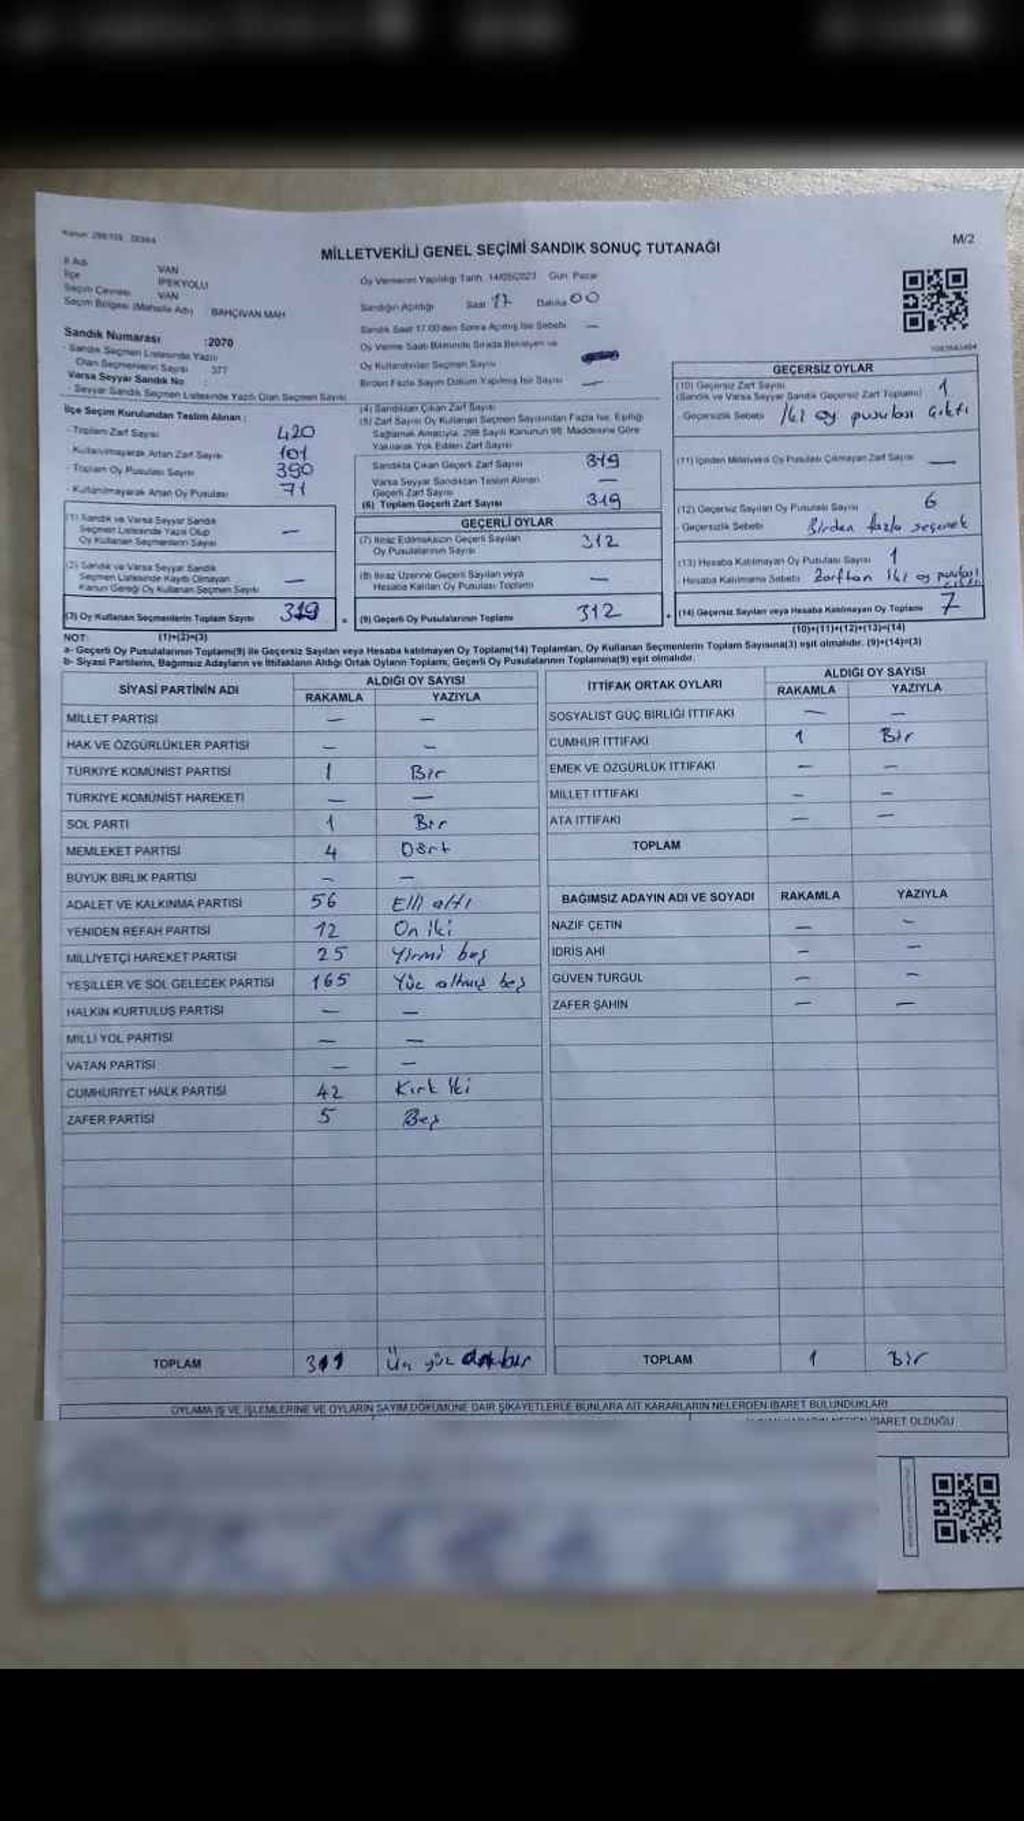 MİLLETVEKİLİ GENEL SEÇİMİ SANDIK SONUÇ TUTANAĞI
M/2
İl Adı VAN
İlçe İPEKYOLU
Seçim Çevresi VAN
Seçim Bölgesi (Mahalle Adı) BAHÇIVAN MAH
Oy Vermenin Yapıldığı Tarih 14/05/2023 Gün Pazar
Sandığın Açıldığı Saat 17 Dakika 00
Sandık Saat 17.00'den Sonra Açılmış İse Sebebi —
Sandık Numarası :2070
Sandık Seçmen Listesinde Yazılı
Olan Seçmenlerin Sayısı 377
Varsa Seyyar Sandık No :
Seyyar Sandık Seçmen Listesinde Yazılı Olan Seçmen Sayısı
Oy Kullandırılan Seçmen Sayısı
Birden Fazla Sayım Döküm Yapılmış İse Sayısı —
İlçe Seçim Kurulundan Teslim Alınan :
- Toplam Zarf Sayısı 420
- Kullanılmayarak Artan Zarf Sayısı 101
- Toplam Oy Pusulası Sayısı 390
- Kullanılmayarak Artan Oy Pusulası 71
(1) Sandık ve Varsa Seyyar Sandık
Seçmen Listesinde Yazılı Olup
Oy Kullanan Seçmenlerin Sayısı —
(2) Sandık ve Varsa Seyyar Sandık
Seçmen Listesinde Kayıtlı Olmayan
Kanun Gereği Oy Kullanan Seçmen Sayısı —
(3) Oy Kullanan Seçmenlerin Toplam Sayısı 319
(4) Sandıktan Çıkan Zarf Sayısı
(5) Zarf Sayısı Oy Kullanan Seçmen Sayısından Fazla İse, Eşitliği
Sağlamak Amacıyla, 298 Sayılı Kanunun 98. Maddesine Göre
Yakılarak Yok Edilen Zarf Sayısı
Sandıkta Çıkan Geçerli Zarf Sayısı 319
Varsa Seyyar Sandıktan Teslim Alınan
Geçerli Zarf Sayısı —
(6) Toplam Geçerli Zarf Sayısı 319
GEÇERLİ OYLAR
(7) İtiraz Edilmeksizin Geçerli Sayılan
Oy Pusulalarının Sayısı 312
(8) İtiraz Üzerine Geçerli Sayılan veya
Hesaba Katılan Oy Pusulası Toplamı —
(9) Geçerli Oy Pusulalarının Toplamı 312
GEÇERSİZ OYLAR
(10) Geçersiz Zarf Sayısı 1
(Sandık ve Varsa Seyyar Sandık Geçersiz Zarf Toplamı)
- Geçersizlik Sebebi İki oy pusulası Çıktı
(11) İçinden Milletvekili Oy Pusulası Çıkmayan Zarf Sayısı —
(12) Geçersiz Sayılan Oy Pusulası Sayısı 6
- Geçersizlik Sebebi Birden fazla seçenek
(13) Hesaba Katılmayan Oy Pusulası Sayısı 1
- Hesaba Katılmama Sebebi Zarftan iki oy pusulası
(14) Geçersiz Sayılan veya Hesaba Katılmayan Oy Toplamı 7
NOT: (1)+(2)=(3)
(10)+(11)+(12)+(13)=(14)
a- Geçerli Oy Pusulalarının Toplamı(9) ile Geçersiz Sayılan veya Hesaba katılmayan Oy Toplamı(14) Toplamları, Oy Kullanan Seçmenlerin Toplam Sayısına(3) eşit olmalıdır. (9)+(14)=(3)
b- Siyasi Partilerin, Bağımsız Adayların ve İttifakların Aldığı Ortak Oyların Toplamı, Geçerli Oy Pusulalarının Toplamına(9) eşit olmalıdır.
SİYASİ PARTİNİN ADI ALDIĞI OY SAYISI
RAKAMLA YAZIYLA
MİLLET PARTİSİ — —
HAK VE ÖZGÜRLÜKLER PARTİSİ — —
TÜRKİYE KOMÜNİST PARTİSİ 1 Bir
TÜRKİYE KOMÜNİST HAREKETİ — —
SOL PARTİ 1 Bir
MEMLEKET PARTİSİ 4 Dört
BÜYÜK BİRLİK PARTİSİ — —
ADALET VE KALKINMA PARTİSİ 56 Elli altı
YENİDEN REFAH PARTİSİ 12 On iki
MİLLİYETÇİ HAREKET PARTİSİ 25 Yirmi beş
YEŞİLLER VE SOL GELECEK PARTİSİ 165 Yüz altmış beş
HALKIN KURTULUŞ PARTİSİ — —
MİLLİ YOL PARTİSİ — —
VATAN PARTİSİ — —
CUMHURİYET HALK PARTİSİ 42 Kırk iki
ZAFER PARTİSİ 5 Beş
TOPLAM 311 Üç yüz
İTTİFAK ORTAK OYLARI ALDIĞI OY SAYISI
RAKAMLA YAZIYLA
SOSYALİST GÜÇ BİRLİĞİ İTTİFAKI — —
CUMHUR İTTİFAKI 1 Bir
EMEK VE ÖZGÜRLÜK İTTİFAKI — —
MİLLET İTTİFAKI — —
ATA İTTİFAKI — —
TOPLAM
BAĞIMSIZ ADAYIN ADI VE SOYADI RAKAMLA YAZIYLA
NAZİF ÇETİN — —
İDRİS AHİ — —
GÜVEN TURGUL — —
ZAFER ŞAHİN — —
TOPLAM 1 Bir
OYLAMA İŞ VE İŞLEMLERİNE VE OYLARIN SAYIM DÖKÜMÜNE DAİR ŞİKAYETLERLE BUNLARA AİT KARARLARIN NELERDEN İBARET BULUNDUKLARI
İBARET OLDUĞU